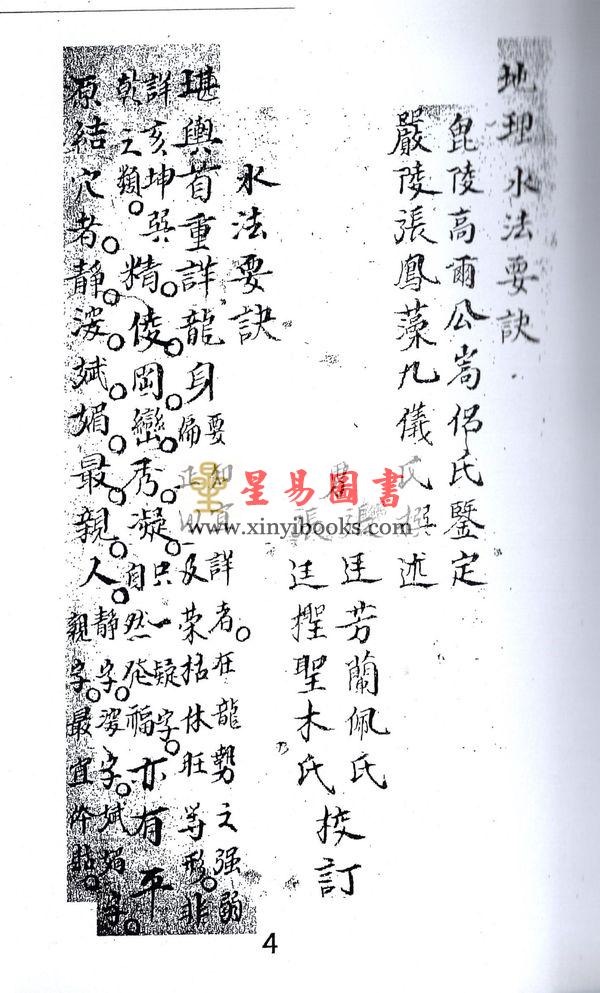 地理水法要訣
毘陵高爾公嵩侶氏鑒定
嚴陵張鳳藻九儀氏撰述
男張廷芳蘭佩氏
張廷擢聖木氏
校訂
水法要訣
堪輿首重詳龍身
要知宜詳者。在龍勢之强弱
偏正以及荣枯休旺等形。非
詳亥坤巽
乾之類。
精俊。岡巒。秀凝。
只一疑字。
自然發福。
亦有平
原結穴者。靜深。斌媚。最親。人
靜字。深字。斌媚字。
親字。最宜吟
星易圖書
www.xinyibooks.com
4